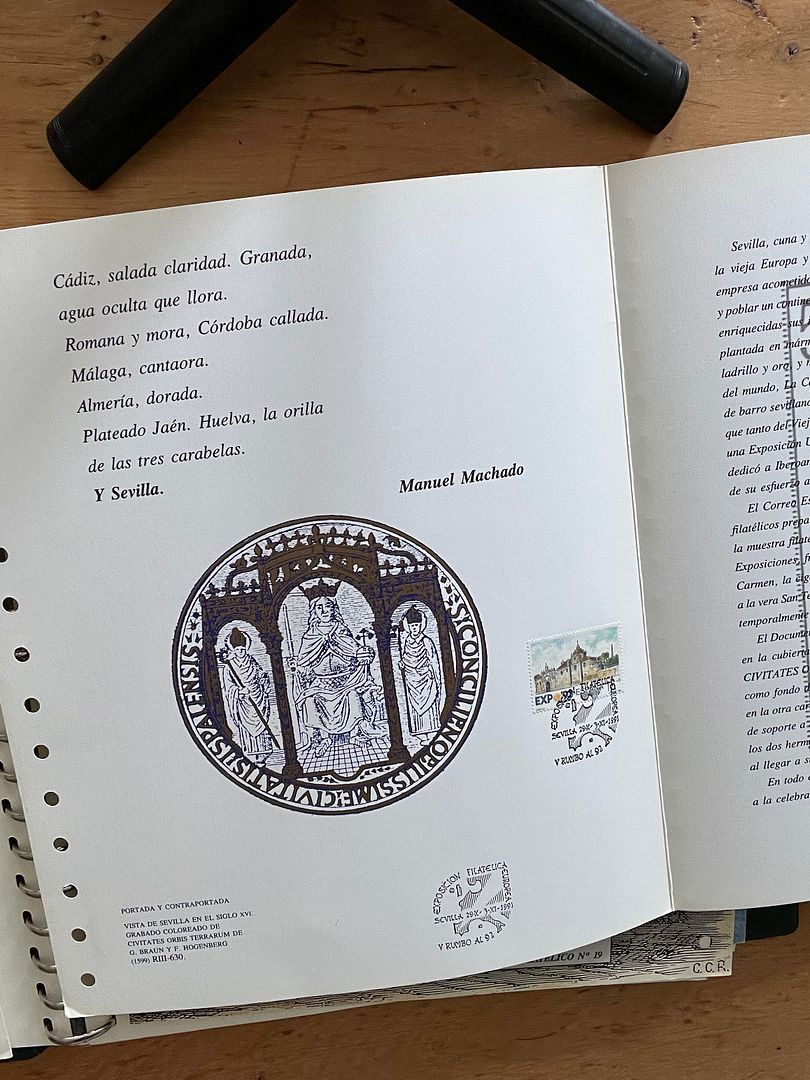 Cádiz, salada claridad. Granada,
agua oculta que llora.
Romana y mora, Córdoba callada.
Málaga, cantaora.
Almería, dorada.
Plateado Jaén. Huelva, la orilla
de las tres carabelas.
Y Sevilla.
Manuel Machado
S:CONCILII:NOBILISSIME:CIVITATIS:ISPALENSIS
EXP 92
EXPOSICION FILATELICA EUROPEA
SEVILLA 29-X- 3-XI-1991
V RUMBO AL 92
EXPOSICION FILATELICA EUROPEA
SEVILLA 29-X- 3-XI-1991
V RUMBO AL 92
PORTADA Y CONTRAPORTADA
VISTA DE SEVILLA EN EL SIGLO XVI.
GRABADO COLOREADO DE
CIVITATES ORBIS TERRARUM DE
G. BRAUN Y F. HOGENBERG
(1599) RIII-630.
Nº 19
C.C.R.
Sevilla, cuna y
la vieja Europa y
empresa acometid
y poblar un contine
enriquecidas sus
plantada en márm
ladrillo y oro, y
del mundo, La C
de barro sevillano
que tanto del Viej
una Exposición U
dedicó a Iberoam
de su esfuerzo a
El Correo Es
filatélicos prepa
la muestra filaté
Exposiciones, f
Carmen, la
a la vera San Te
temporalmente
El Docum
en la cubiert
CIVITATES O
como fondo
en la otra ca
de soporte a
los dos herm
al llegar a s
En todo
a la celebra